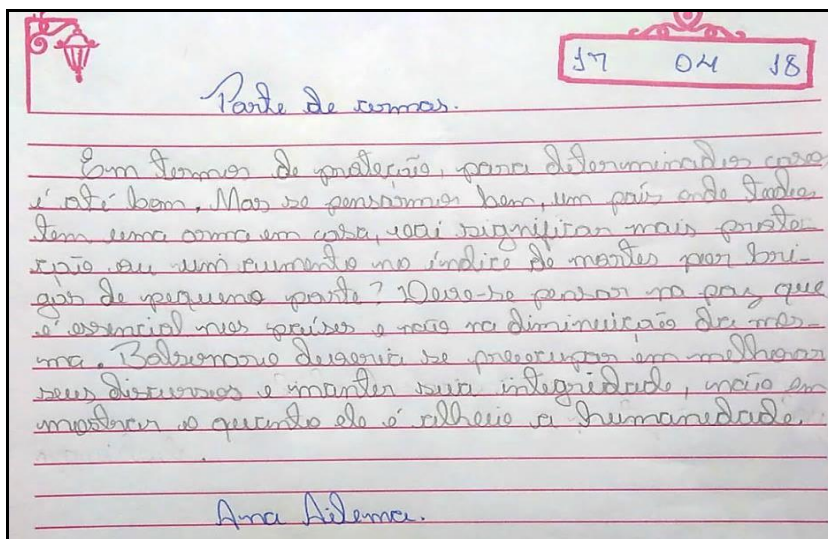 17 04 18
Porte de armas.
Em termos de proteção, para determinados casos
é até bom. Mas se pensarmos bem, um país onde todos
tem uma arma em casa, vai significar mais prote-
ção ou um aumento no índice de mortes por bri-
gas de pequeno porte? Deve-se pensar na paz que
é essencial nos países e não na diminuição da mes-
ma. Bolsonaro deveria se preocupar em melhorar
seus discursos e manter sua integridade, não em
mostrar o quanto ele é alheio a humanidade.
Ana Ailema.